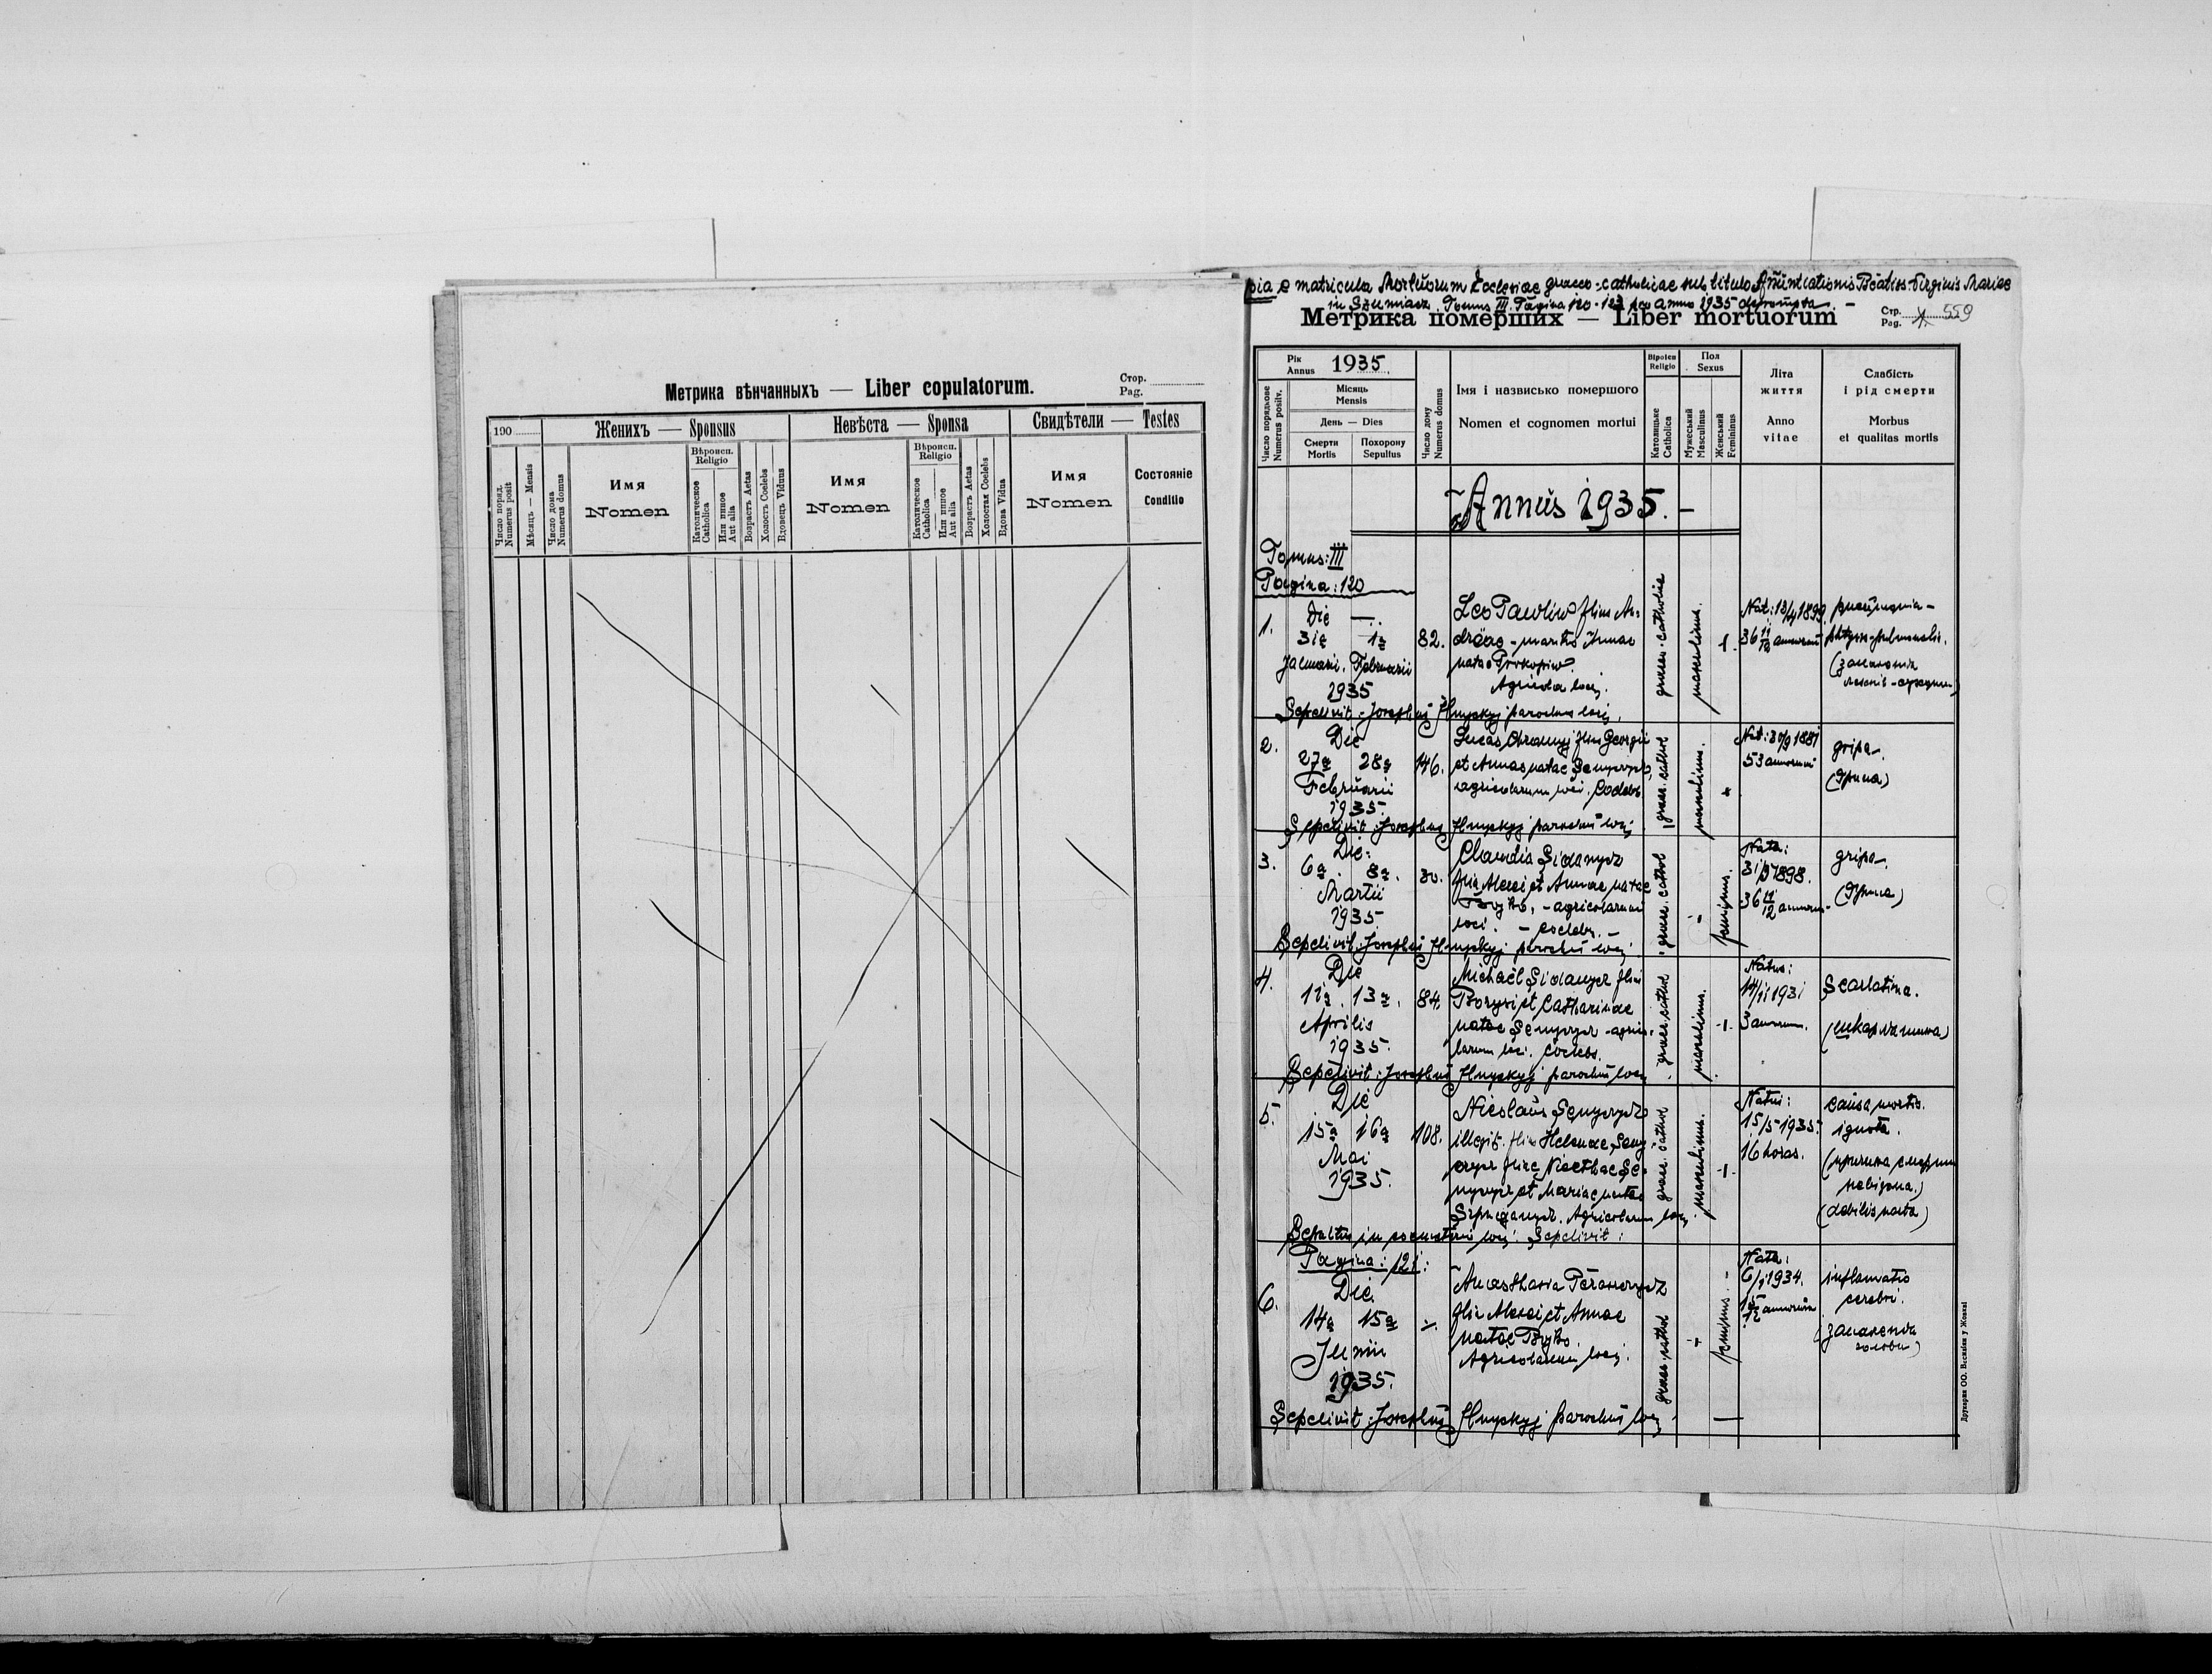 Метрика вѣнчанныхъ — Liber copulatorum.
Стор.
Pag.
190
Женихъ — Sponsus
Невѣста — Sponsa
Свидѣтели — Testes
Число поряд.
Numerus posit
Мѣсяць — Mensis
Число дома
Numerus domus
Имя
Nomen
Вѣроисп.
Religio
Католическое
Catholica
Или инное
Aut alia
Возрастъ Aetas
Холостъ Coelebs
Вдовецъ Viduus
Имя
Nomen
Вѣроисп.
Religio
Католическое
Catholica
Или инное
Aut alia
Возрастъ Aetas
Холостая Coelebs
Вдова Vidua
Имя
Nomen
Состояніе
Conditio
pia e matricula Mortuorum Ecclesiae graeco-catholicae sub titulo Annuntiationis Beatiss. Virginis Mariae
in Szumiacz. Tomus III. Pagina 120-123 pro anno 1935 deprompta. —
Метрика померших — Liber mortuorum
Стр.
Pag. 559
Рік
Annus 1935.
Число порядкове
Numerus positv.
Місяць
Mensis
День — Dies
Смерти
Mortis
Похорону
Sepultus
Число дому
Numerus domus
Імя і назвисько помершого
Nomen et cognomen mortui
Віроісп
Religio
Католицьке
Catholica
Пол
Sexus
Мужеський
Masculinus
Женський
Femininus
Літа
життя
Anno
vitae
Слабість
і рід смерти
Morbus
et qualitas mortis
Annus 1935. —
Tomus: III
Pagina: 120
1. Die
31a 1a 82.
Januarii. Februarii
1935
Leo Pawliw filius An-
dreae - maritus Annae
natae Prokopiw.
Agricola loci.
graec. catholic
masculinus.
Nat: 13/4 1899.
36 11/12 annorum
phtysis pulmonalis.
Sepelivit: Josephus Hnyckyj parochus loci.
2. Die
27a 28a 146.
Februarii
1935.
Lucas filius Georgii
et Annae natae Senyszyn,
agricolarum loci. Coelebs
graec. cathol
masculinus.
Nat: 30/9 1881
53 annorum
gripa
(Грипа)
Sepelivit: Josephus Hnyckyj parochus loci
3. Die:
6a. 8a. 30.
Martii
1935.
Claudia
filia Alexii et Annae natae
Bryko, - agricolarum
loci. - coelebs. -
graec. cathol
feminus.
Nata:
1898.
36 11/12 annorum
gripa
(Грипа)
Sepelivit: Josephus Hnyckyj parochus loci
4. Die
11a. 13a. 84.
Aprilis
1935.
Michaël filius
et Catharinae
natae - agrico-
larum loci. Coelebs.
graec. cathol
masculinus.
Natus:
14/11 1931
3 annorum.
Scarlatina.
(шкарлатина)
Sepelivit: Josephus Hnyckyj parochus loci
5. Die
15a 16a 108.
Mai
1935.
Nicolaus
illegit. filius Helenae
filiae Nicethae Se-
et Mariae natae
Agricolarum loci
graec. cathol
masculinus.
Natus:
15/5 1935.
16 horas.
causa mortis
ignota.
(причина смерти
невідома.)
(debilis natus)
Sepultus in coemeterio loci. Sepelivit:
Pagina: 121:
6. Die
14a 15a
Junii
1935.
Anasthasia
filia Alexii et Annae
natae Bryko.
Agricolarum loci.
graec. cathol
feminus.
Nata:
6/1 1934.
1 5/12 annorum
inflamatio
cerebri.
(запалення
голови)
Sepelivit: Josephus Hnyckyj parochus loci
Друкарня ОО. Василіян у Жовкві